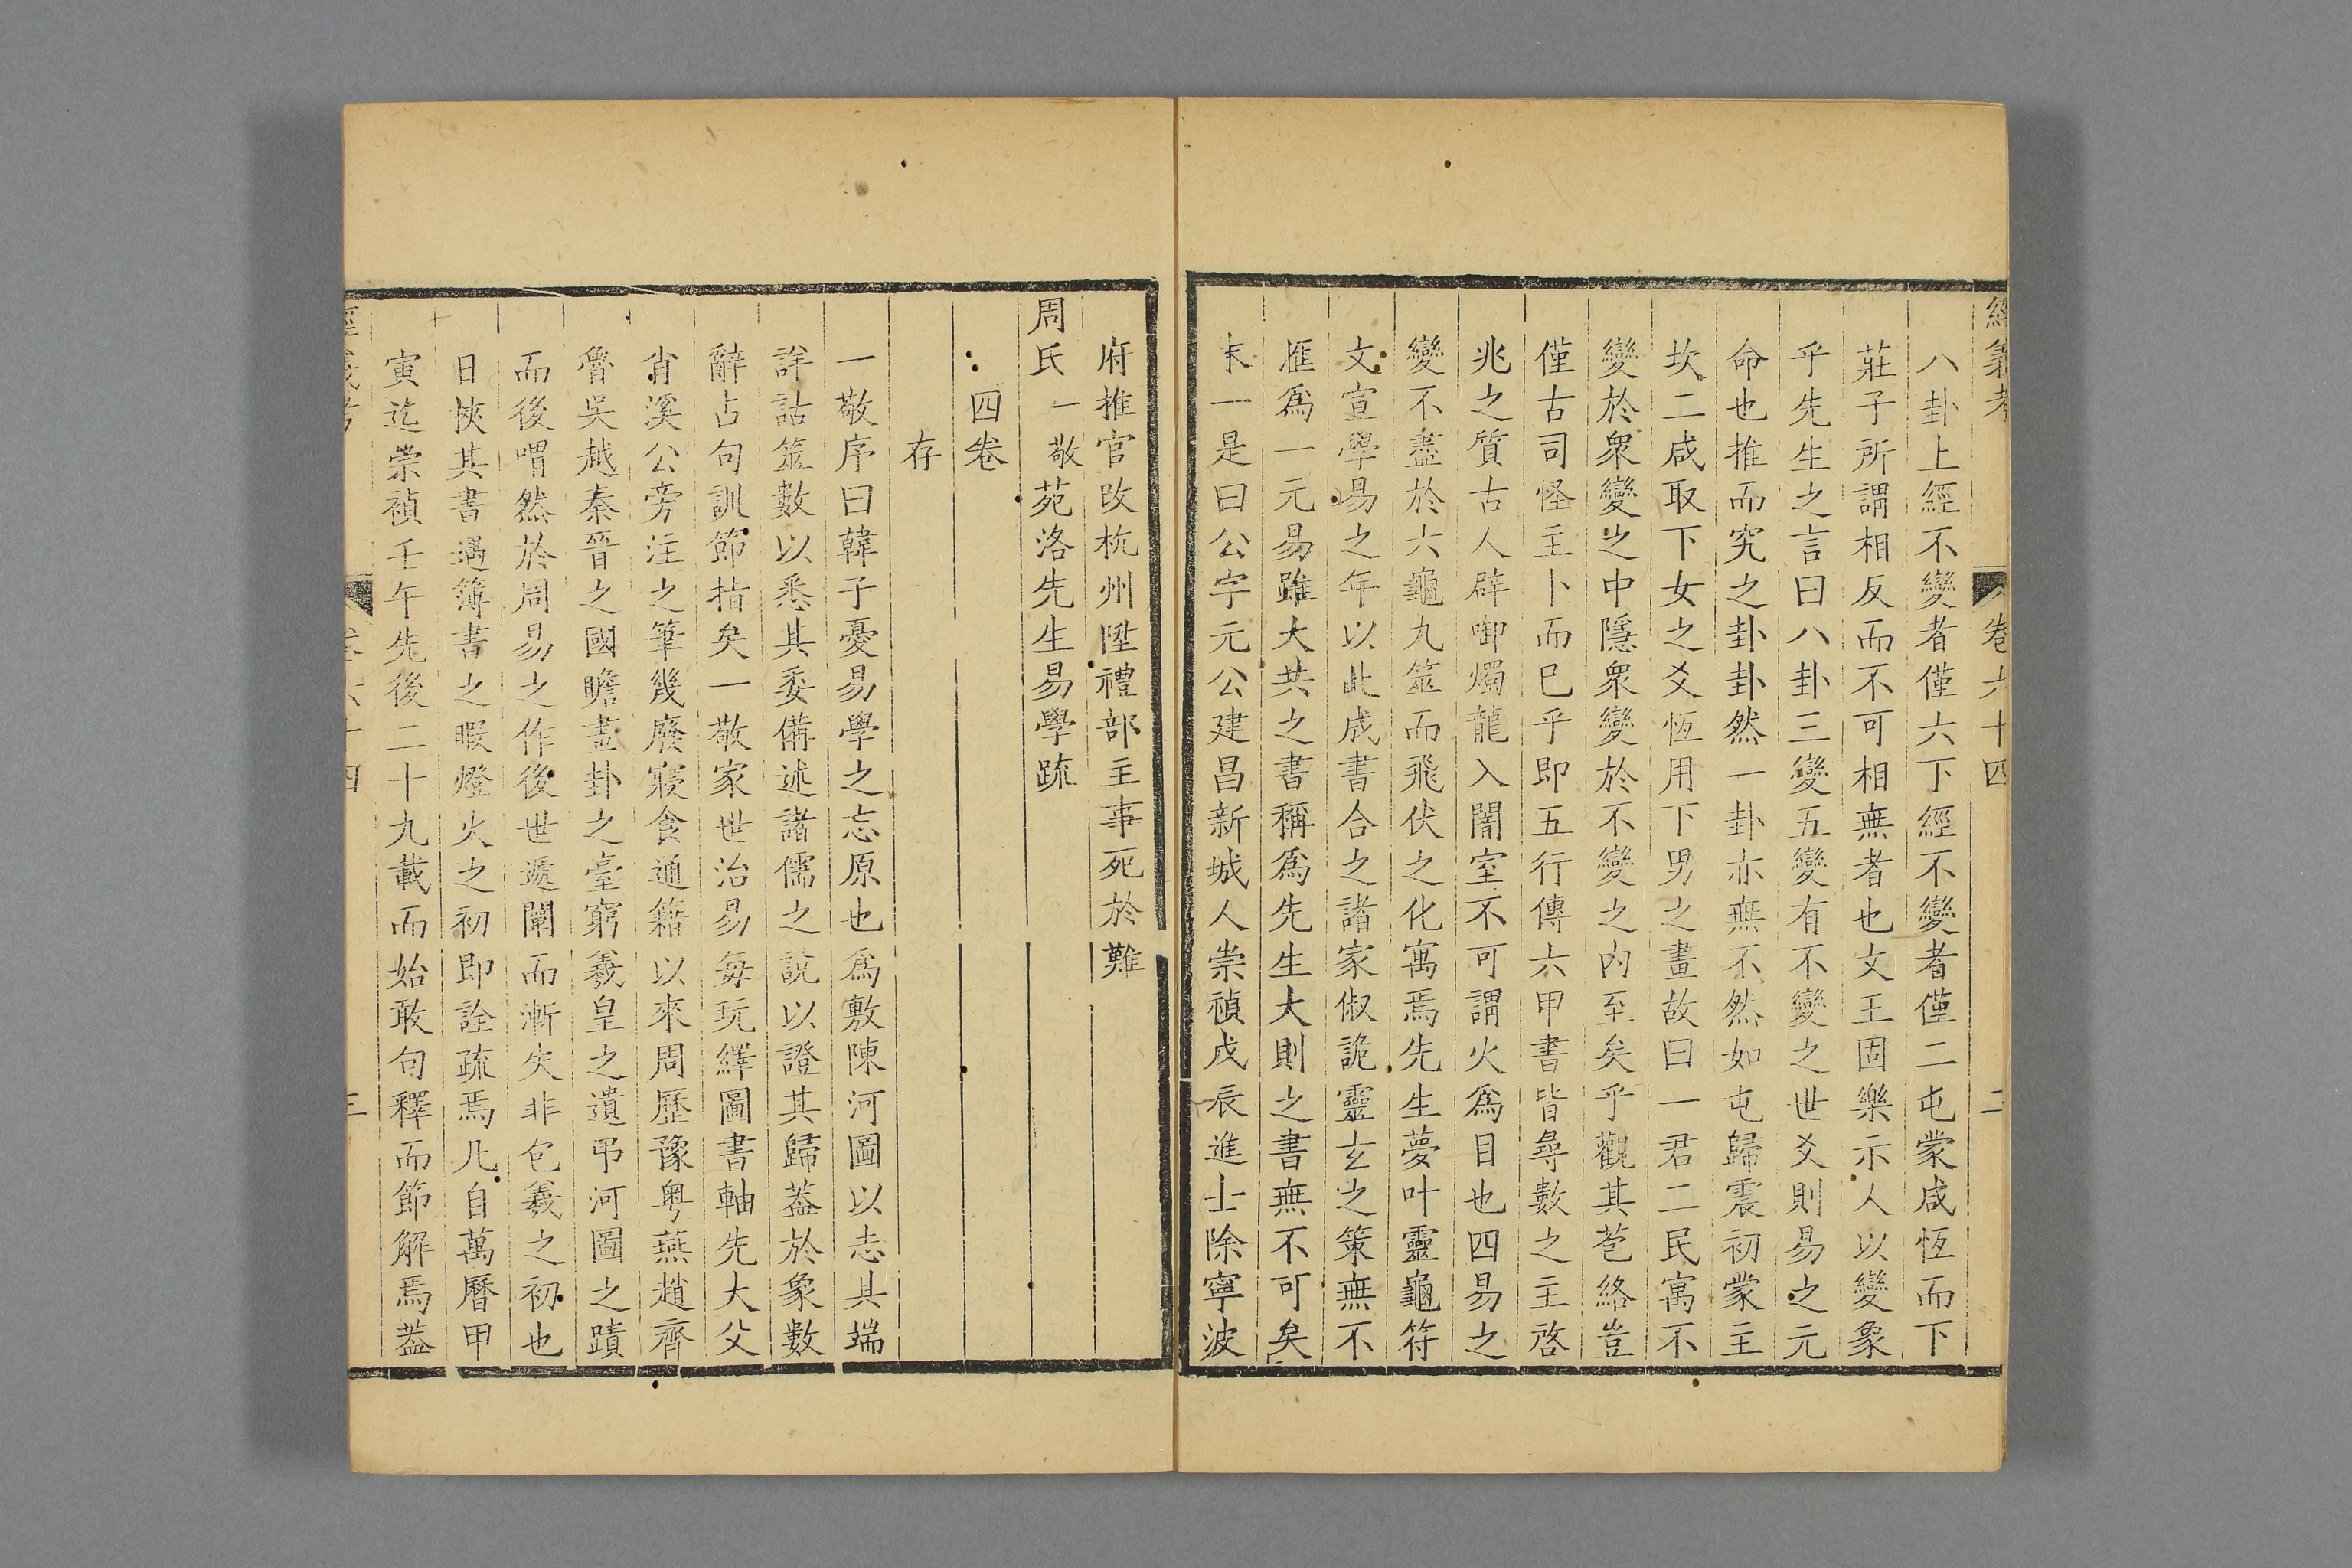 經義考 卷六十四 二
八卦上經不變者僅六下經不變者僅二屯蒙咸恆而下
莊子所謂相反而不可相無者也文王固樂示人以變象
乎先生之言曰八卦三變五變有不變之世爻則易之元
命也推而究之卦卦然一卦亦無不然如屯歸震初蒙主
坎二咸取下女之爻恆用下男之畫故曰一君二民寓不
變於衆變之中隱衆變於不變之內至矣乎觀其苞絡豈
僅古司怪主卜而已乎即五行傳六甲書皆尋數之主啓
兆之質古人辟啣燭龍入闇室不可謂火爲目也四易之
變不盡於六龜九筮而飛伏之化寓焉先生夢叶靈龜符
文宣學易之年以此成書合之諸家俶詭靈玄之策無不
匯爲一元易雖大共之書稱爲先生大則之書無不可矣
末一是曰公字元公建昌新城人崇禎戊辰進士除寧波
府推官改杭州陞禮部主事死於難
周氏一敬苑洛先生易學疏
四卷
存
一敬序曰韓子憂易學之忘原也爲敷陳河圖以志其端
詳詁筮數以悉其委備述諸儒之說以證其歸葢於象數
辭占句訓節指矣一敬家世治易每玩繹圖書軸先大父
肖溪公旁注之筆幾廢寢食通籍以來周歷豫粤燕趙齊
魯吳越秦晉之國瞻畫卦之臺窮羲皇之遺弔河圖之蹟
而後喟然於周易之作後世遞闡而漸失非包羲之初也
日挾其書遇簿書之暇燈火之初即詮疏焉几自萬曆甲
寅迄崇禎壬午先後二十九載而始敢句釋而節解焉葢
經義考 卷六十四 三